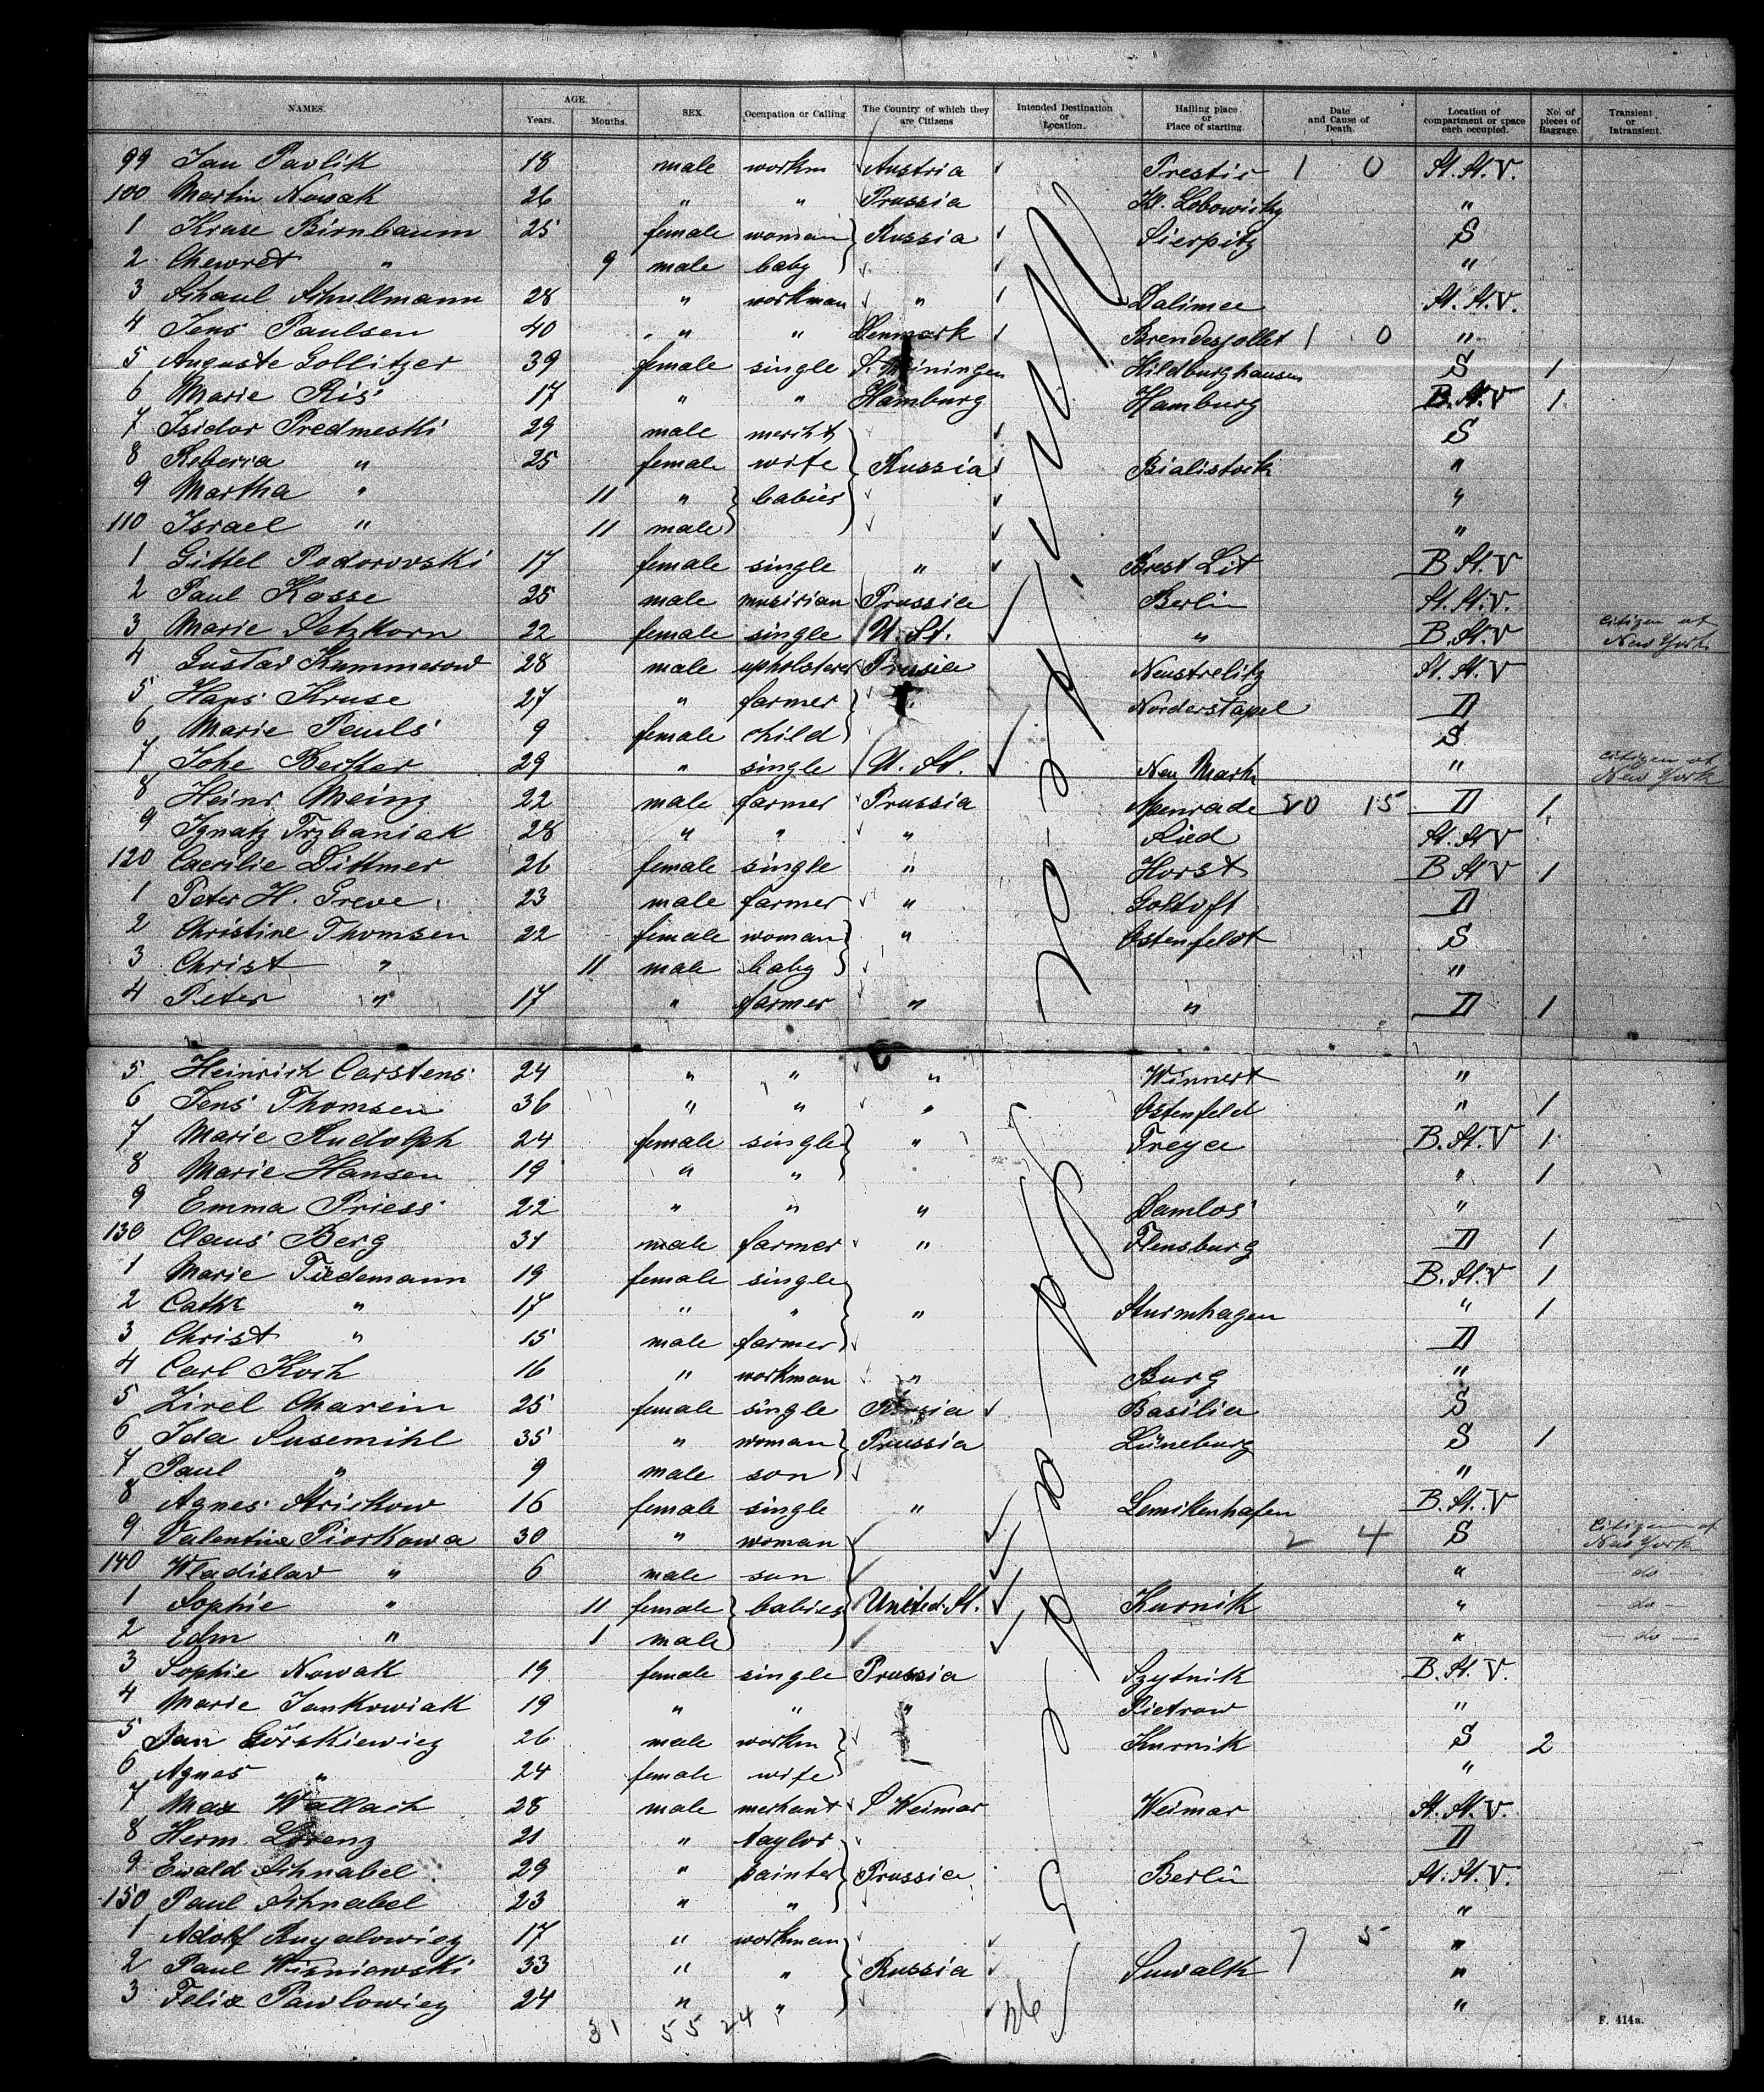 NAMES. AGE. Years. Months. SEX. Occupation or Calling The Country of which they are Citizens Intended Destination or Location. Hailing place or Place of starting. Date and Cause of Death. Location of compartment or space each occupied. No. of pieces of Baggage. Transient or Intransient.
99 Jan Pavlik 18 male workm Austria Prestic 1 0 St. St. V.
100 Martin Nowak 26 " " Prussia Kl. "
1 Kruse Birnbaum 25 female woman Russia Sierpitz S
2 Chewret " 9 male baby "
3 Schaul Schullmann 28 " workman " Dalimee St. St. V.
4 Jens Paulsen 40 " " Denmark 1 0 "
5 Auguste Gollitzer 39 female single S. Meiningen Hildburghausen S 1
6 Marie Ris 17 " " Hamburg Hamburg B. St. V 1
7 Isidor Predmeski 29 male mercht S
8 Reberra " 25 female wife Russia Bialistock "
9 Martha " 11 " babies "
110 Israel " 11 male "
1 Gittel Podorovski 17 female single " Brest Lit B St. V
2 Paul Kosse 25 male musician Prussia Berlin St. St. V.
3 Marie Satzkorn 22 female single U. St. " B. St. V citizen of New York
4 Gustav Kummerow 28 male upholsterer Prussia Neustrelitz St. St. V
5 Hans Kruse 27 " farmer " Norderstapel II
6 Marie Pauls 9 female child S
7 Johe Becker 29 " single U. St. Neu Mark " citizen of New York
8 Heinr Meinz 22 male farmer Prussia Apenrade 20 15 II 1
9 Ignatz Trzbaniak 28 " " " Ried St. St V
120 Caecilie Dittmer 26 female single " Horst B St V 1
1 Peter H. Greve 23 male farmer " Goltoft II
2 Christine Thomsen 22 female woman " Ostenfeldt S
3 Christ " 11 male baby "
4 Peter " 17 " farmer " " II 1
5 Heinrich Carstens 24 " " " Winnert "
6 Jens Thomsen 36 " " " Ostenfeld " 1
7 Marie Rudolph 24 female single " Treya B. St. V 1
8 Marie Hansen 19 " " " 1
9 Emma Priess 22 " " " Damlos "
130 Claus Berg 31 male farmer " Flensburg II 1
1 Marie Tiedemann 19 female single B. St. V 1
2 Cathr " 17 " " " Sturmhagen " 1
3 Christ " 15 male farmer II
4 Carl Koch 16 " workman " Burg "
5 Zirel Charein 25 female single Russia Basilia S
6 Ida Susemihl 35 " woman Prussia Lüneburg S 1
7 Paul " 9 male son "
8 Agnes Striskow 16 female single " Lemkenhafen B. St. V
9 Valentine Piorkowa 30 " woman 2 4 S Citizen of New York
140 Wladislav " 6 male son " do
1 Sophie " 11 female babies United St. Kurnik " do
2 Edm " 1 male " do
3 Sophie Nowak 19 female single Prussia Szytnik B. St. V.
4 Marie Jankowiak 19 " " " Pietrow "
5 Jan Górskiewicz 26 male workm Kurnik S 2
6 Agnes " 24 female wife "
7 Max Wallach 28 male merhant S Weimar Weimar St. St. V.
8 Herm. Lorenz 21 " taylor II
9 Ewald Schnabel 29 " painter Prussia Berlin St. St. V.
150 Paul Schnabel 23 " " "
1 Adolf 17 " workman 7 5 "
2 Paul Wisniewski 33 " " Russia Suwalk "
3 Felix Pawlowicz 24 " " "
31 55 24
F. 414a.